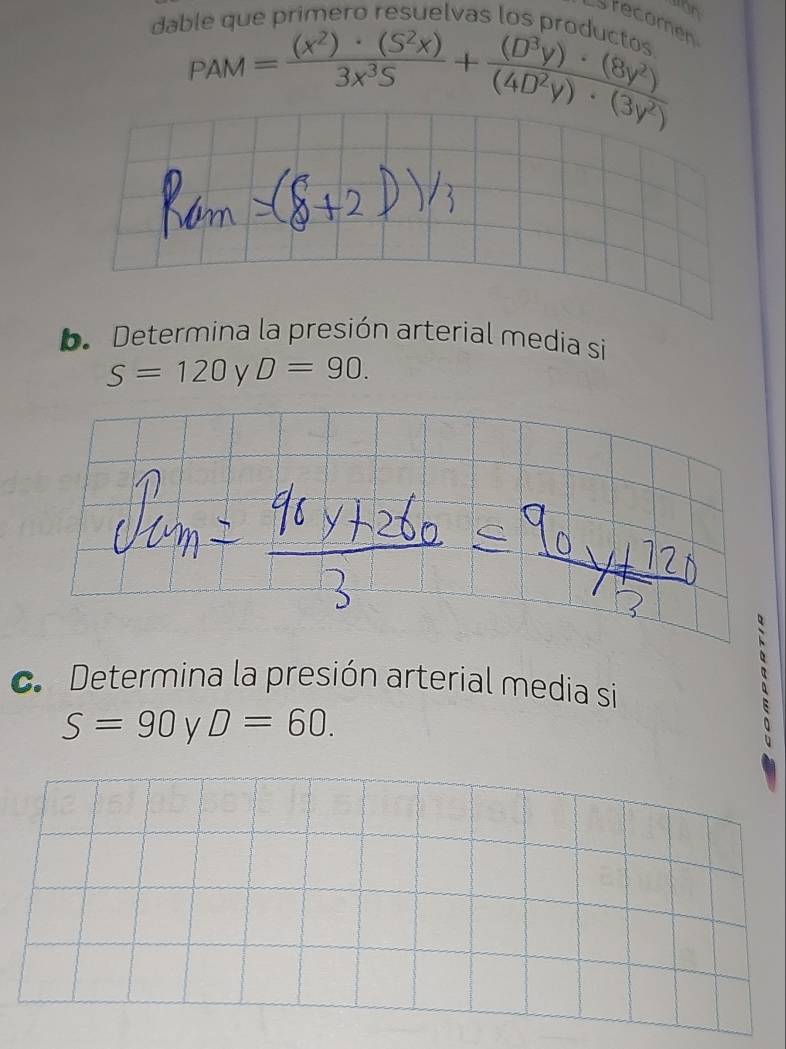 s recomen
dable que primero resuelvas los productos.
PAM = (x²) · (S²x) / 3x³S + (D³y) · (8y²) / (4D²y) · (3y²)
Pam = (S+2D)/3
b. Determina la presión arterial media si
S = 120 y D = 90.
Pam = 90y+260 / 3 = 90y+120 / 3
c. Determina la presión arterial media si
S = 90 y D = 60.
COMPARTIR